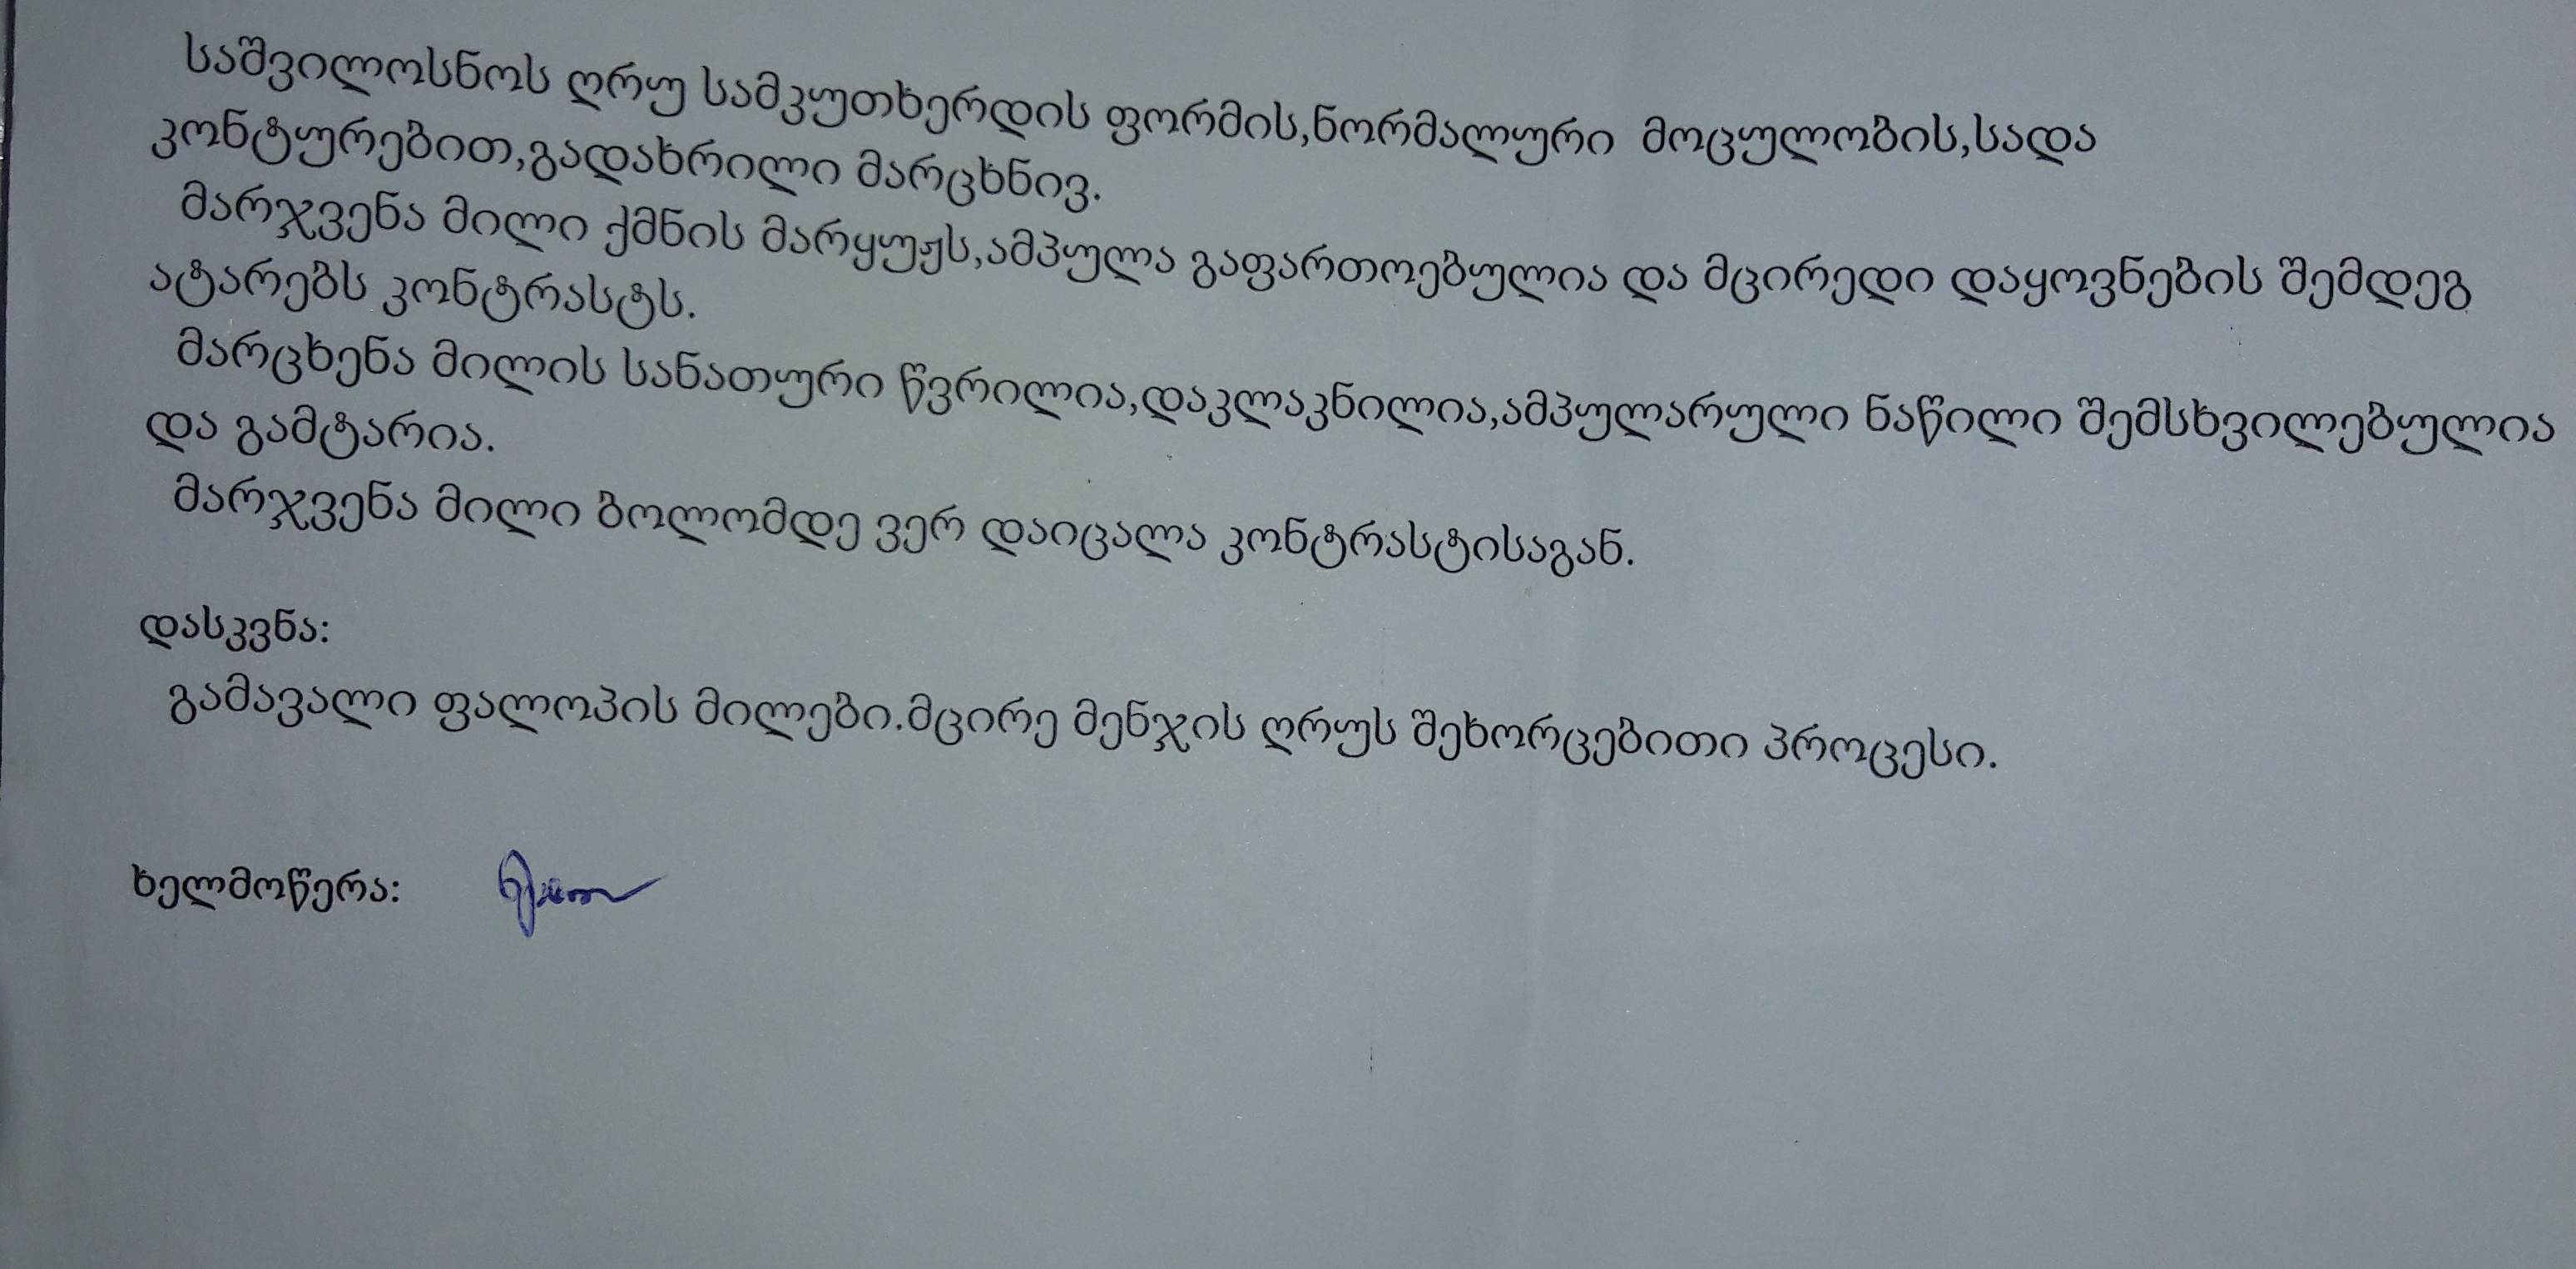 საშვილოსნოს ღრუ სამკუთხერდის ფორმის,ნორმალური მოცულობის,სადა
კონტურებით,გადახრილი მარცხნივ.
მარჯვენა მილი ქმნის მარყუჟს,ამპულა გაფართოებულია და მცირედი დაყოვნების შემდეგ
ატარებს კონტრასტს.
მარცხენა მილის სანათური წვრილია,დაკლაკნილია,ამპულარული ნაწილი შემსხვილებულია
და გამტარია.
მარჯვენა მილი ბოლომდე ვერ დაიცალა კონტრასტისაგან.
დასკვნა:
გამავალი ფალოპის მილები.მცირე მენჯის ღრუს შეხორცებითი პროცესი.
ხელმოწერა: